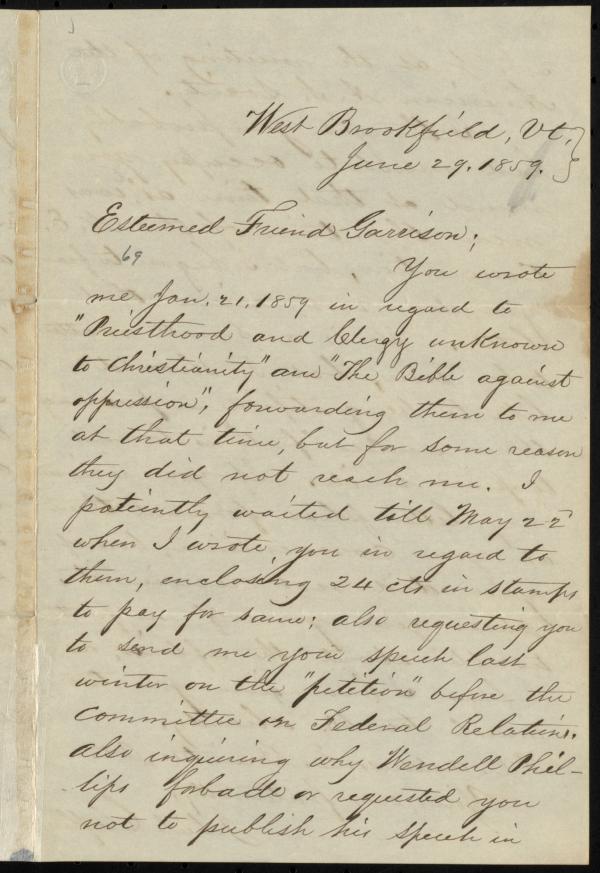 West Brookfield, Vt,
June 29. 1859.
Esteemed Friend Garrison;
69
You wrote
me Jan. 21. 1859 in regard to
"Priesthood and Clergy unknown
to Christianity" and "The Bible against
oppression", forwarding them to me
at that time, but for some reason
they did not reach me. I
patiently waited till May 22
when I wrote, you in regard to
them, enclosing 24 cts in stamps
to pay for same; also requesting you
to send me your speech last
winter on the "petition" before the
Committee on Federal Relations.
also inquiring why Wendell Phil-
lips forbade or requested you
not to publish his speech in